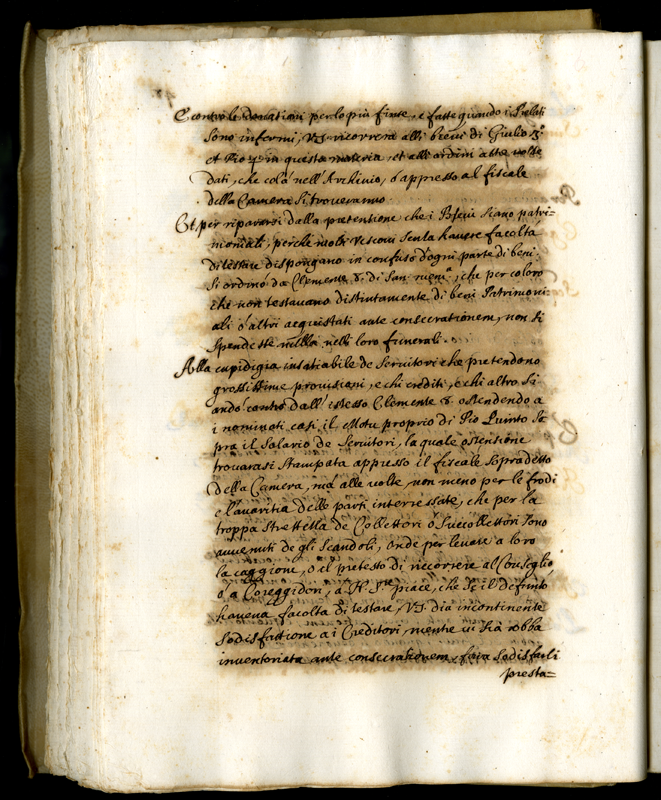 E contro le donationi per lo più finte, e fatte quando i Prelati
sono infermi, VS. ricorrerà alli brevi di Giulio 3.º
et Pio 4.º in questa materia, et alli ordini altre volte
dati, che colà nell'Archivio, ò appresso al fiscale
della Camera si troveranno.
Et per ripararsi dalla pretentione che i Beni siano patri=
moniali, perche molti Vescovi senza havere facoltà
di testare dispongano in confuso d'ogni parte di beni.
Si ordinò da Clemente 8. di San. mem.ª, che per coloro
che non testavano distintamente di beni Patrimoni-
ali ò altri acquistati ante consecrationem, non si
spendesse nulla nelli loro funerali.
Alla cupidigia insatiabile de Servitori che pretendono
grossissime provisioni, e chi crediti, e chi altro si
andò contro dall'istesso Clemente 8. ostendendo a
i nominati casi il Motu proprio di Pio Quinto So
pra il Salario de Servitori, la quale ostensione
trovarasi stampata appresso il fiscale sopradetto
della Camera, mà alle volte, non meno per le frodi
e l'avaritia delle parti interessate, che per la
troppa strettezza de Collettori ò Succollettori sono
avvenuti de gli Scandoli, onde per levare a loro
la caggione, o il pretesto di ricorrere al Conseglio,
ò a Coreggidori, à N. S.re piace, che se il defunto
haveva facoltà di testare, VS. dia incontinente
Sodisfattione a i Creditori, mentre in sià robba
inventoriata ante consecrationem, faia sodisfarli
presta=